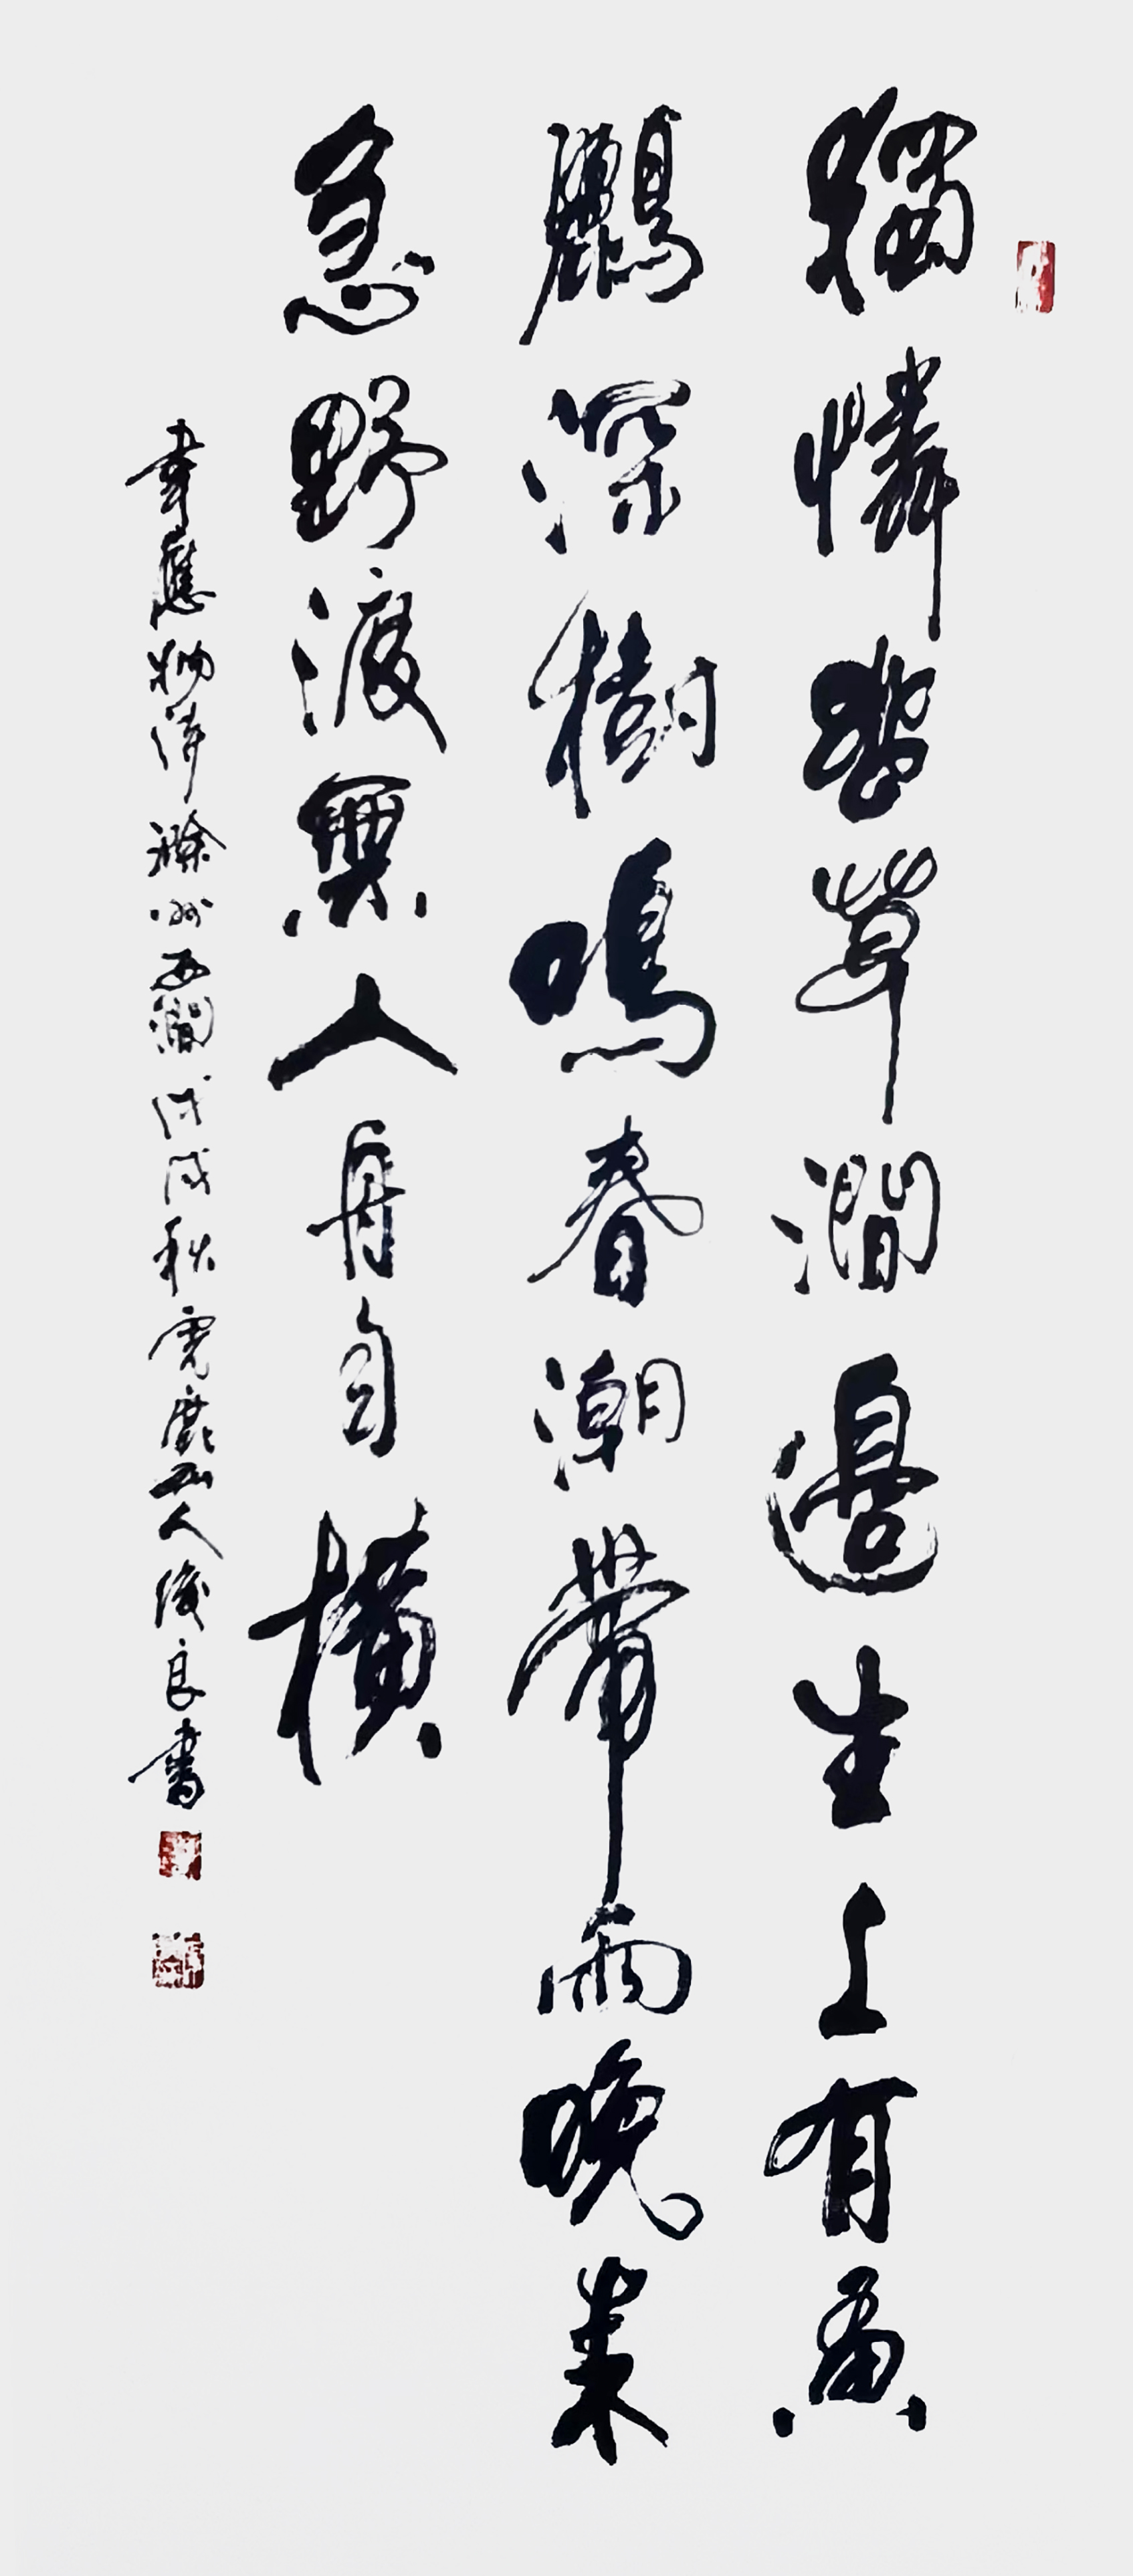 獨憐幽草澗邊生上有黃
鸝深樹鳴春潮帶雨晚來
急野渡無人舟自橫
韋應物詩滁州西澗戊戌秋虎鹿山人俊良書